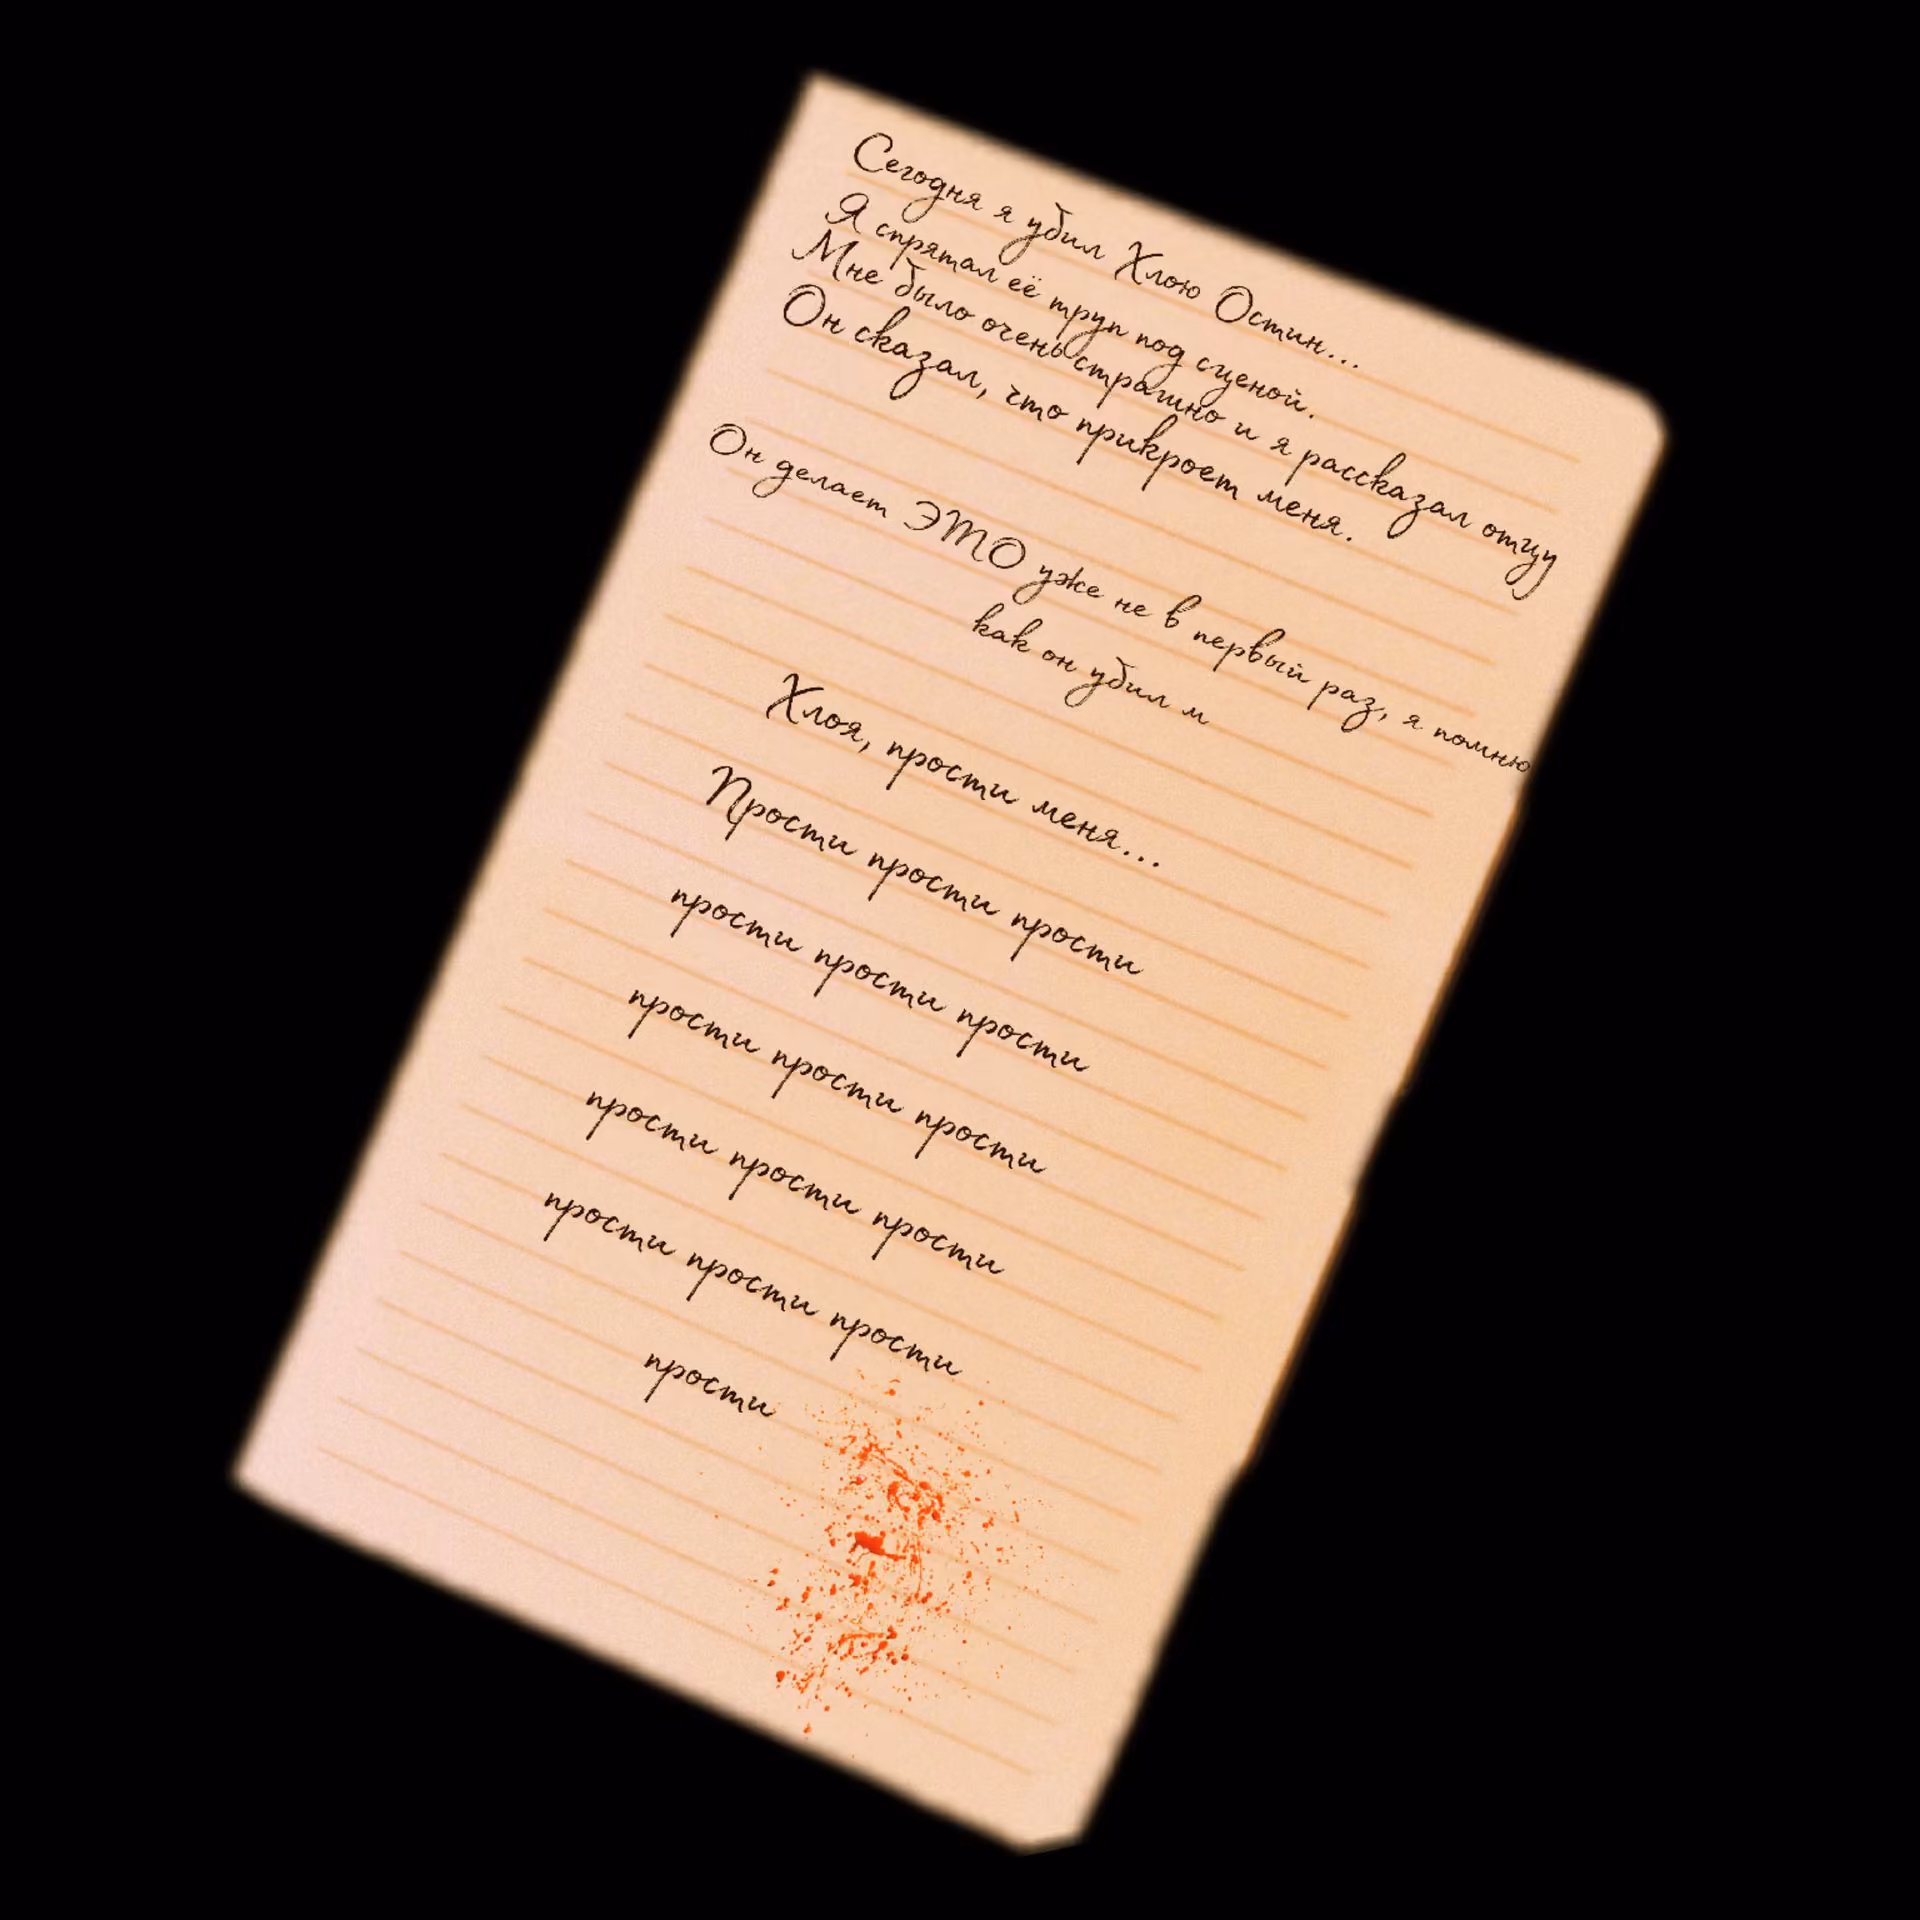 Сегодня я убил Хлою Остин...
Я спрятал её труп под сценой.
Мне было очень страшно и я рассказал отцу
Он сказал, что прикроет меня.
Он делает ЭТО уже не в первый раз, я помню
как он убил м
Хлоя, прости меня...
Прости прости прости
прости прости прости
прости прости прости
прости прости прости
прости прости прости
прости